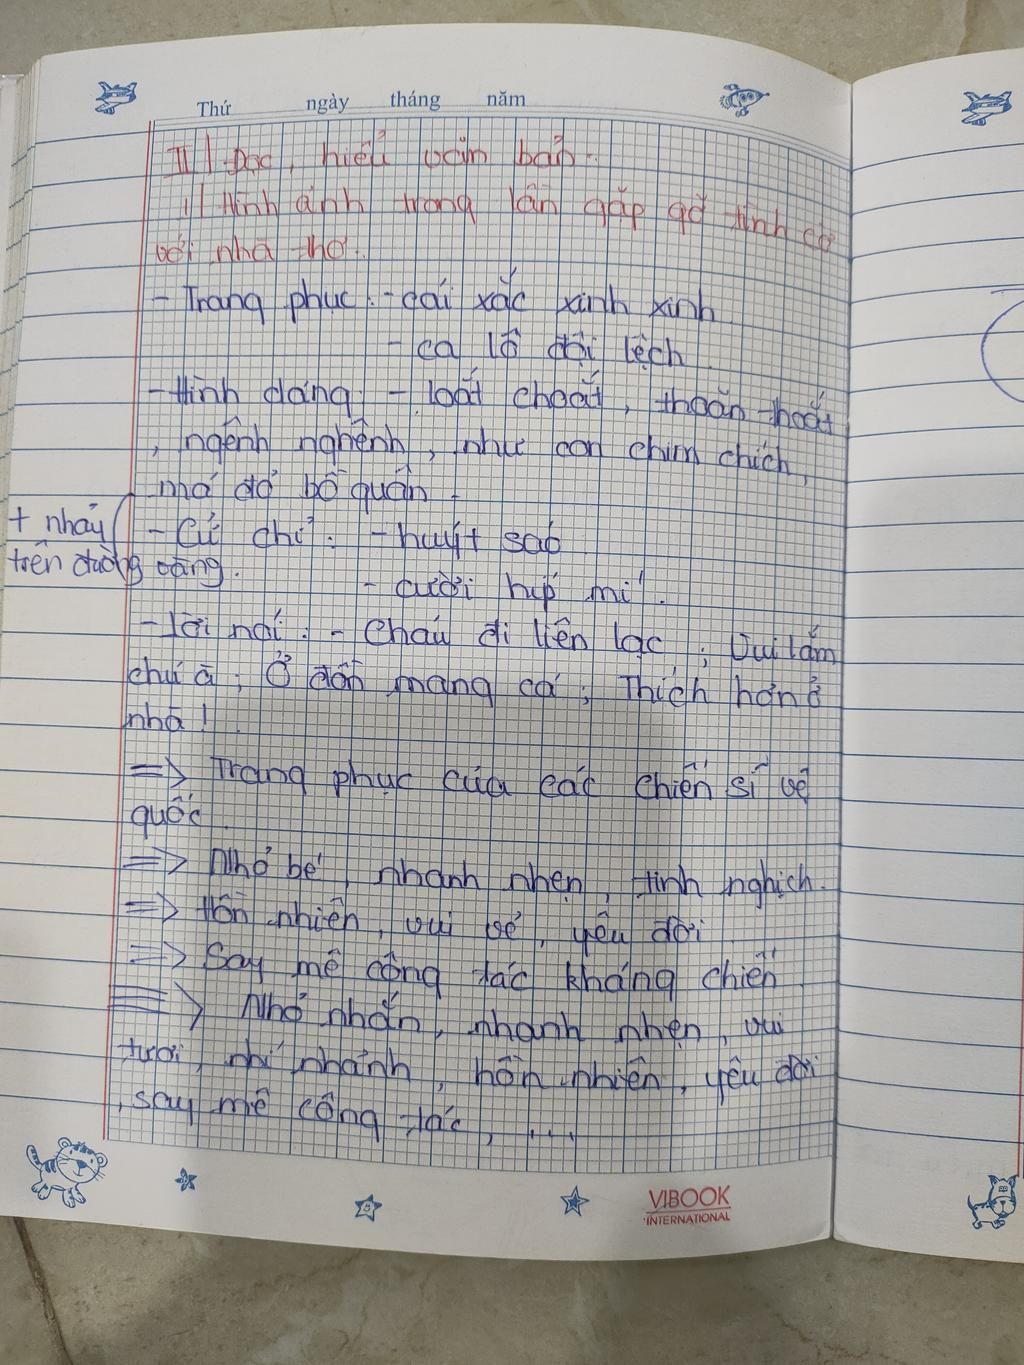 Thứ ngày tháng năm
II / Đọc, hiểu văn bản.
1 / Hình ảnh trong lần gặp gỡ tình cờ
với nhà thơ.
- Trang phục: - cái xắc xinh xinh
- ca lô đội lệch
- Hình dáng: - loắt choắt, thoăn thoắt
, ngênh nghênh, như con chim chích,
má đỏ bồ quân.
+ nhảy
trên đường vàng.
- Cử chỉ: - huýt sáo
- cười híp mí.
- Lời nói: - Cháu đi liên lạc; Vui lắm
chú à; Ở đồn mang cá; Thích hơn ở
nhà!
=> Trang phục của các chiến sĩ vệ
quốc.
=> Nhỏ bé, nhanh nhẹn, tinh nghịch.
=> Hồn nhiên, vui vẻ, yêu đời
=> Say mê công tác kháng chiến
=> Nhỏ nhắn, nhanh nhẹn, vui
tươi, nhí nhảnh, hồn nhiên, yêu đời
, say mê công tác, ....
VIBOOK
INTERNATIONAL